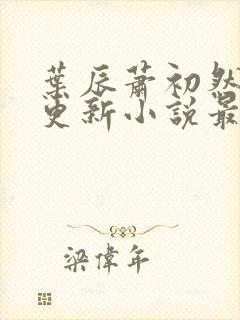 葉辰蕭初然
更新小說最
梁偉年